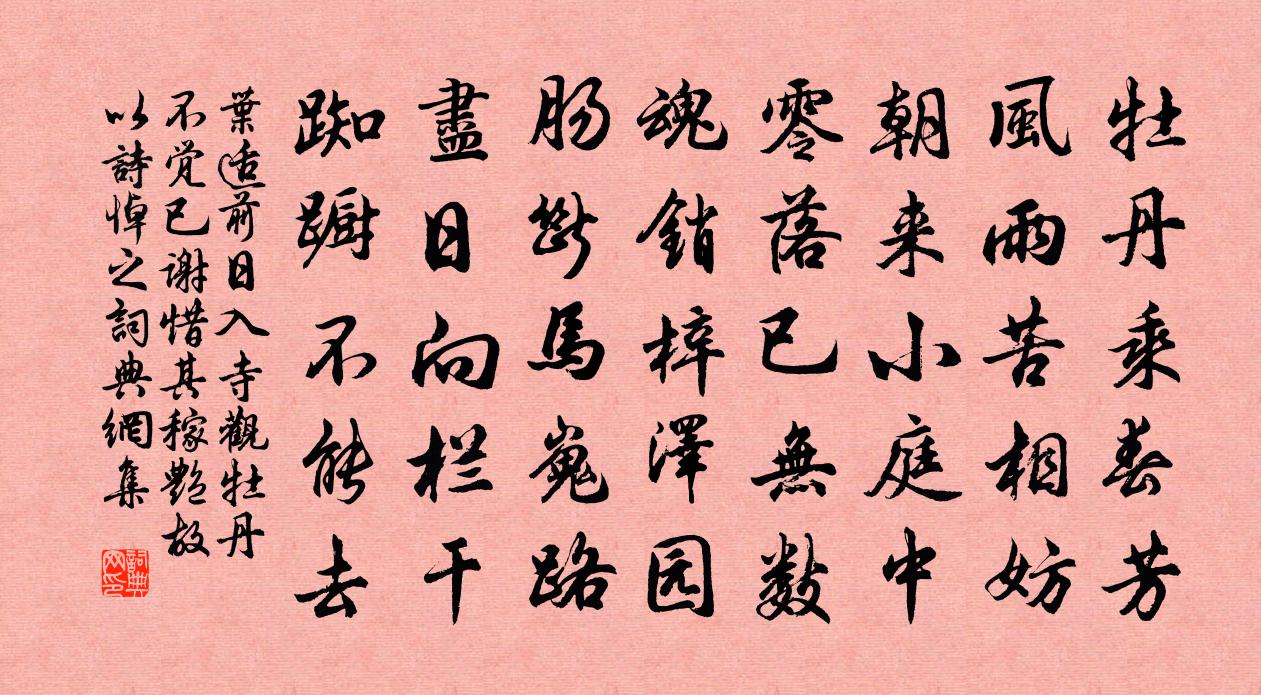 牡丹乘春芳
風雨苦相妨
朝来小庭中
零落已無數
魂銷梓澤园
肠斷馬嵬路
盡日向栏干
踟蹰不能去
葉适前日入寺觀牡丹
不觉已谢惜其稼艷故
以詩悼之詞典網集
詞典
网印